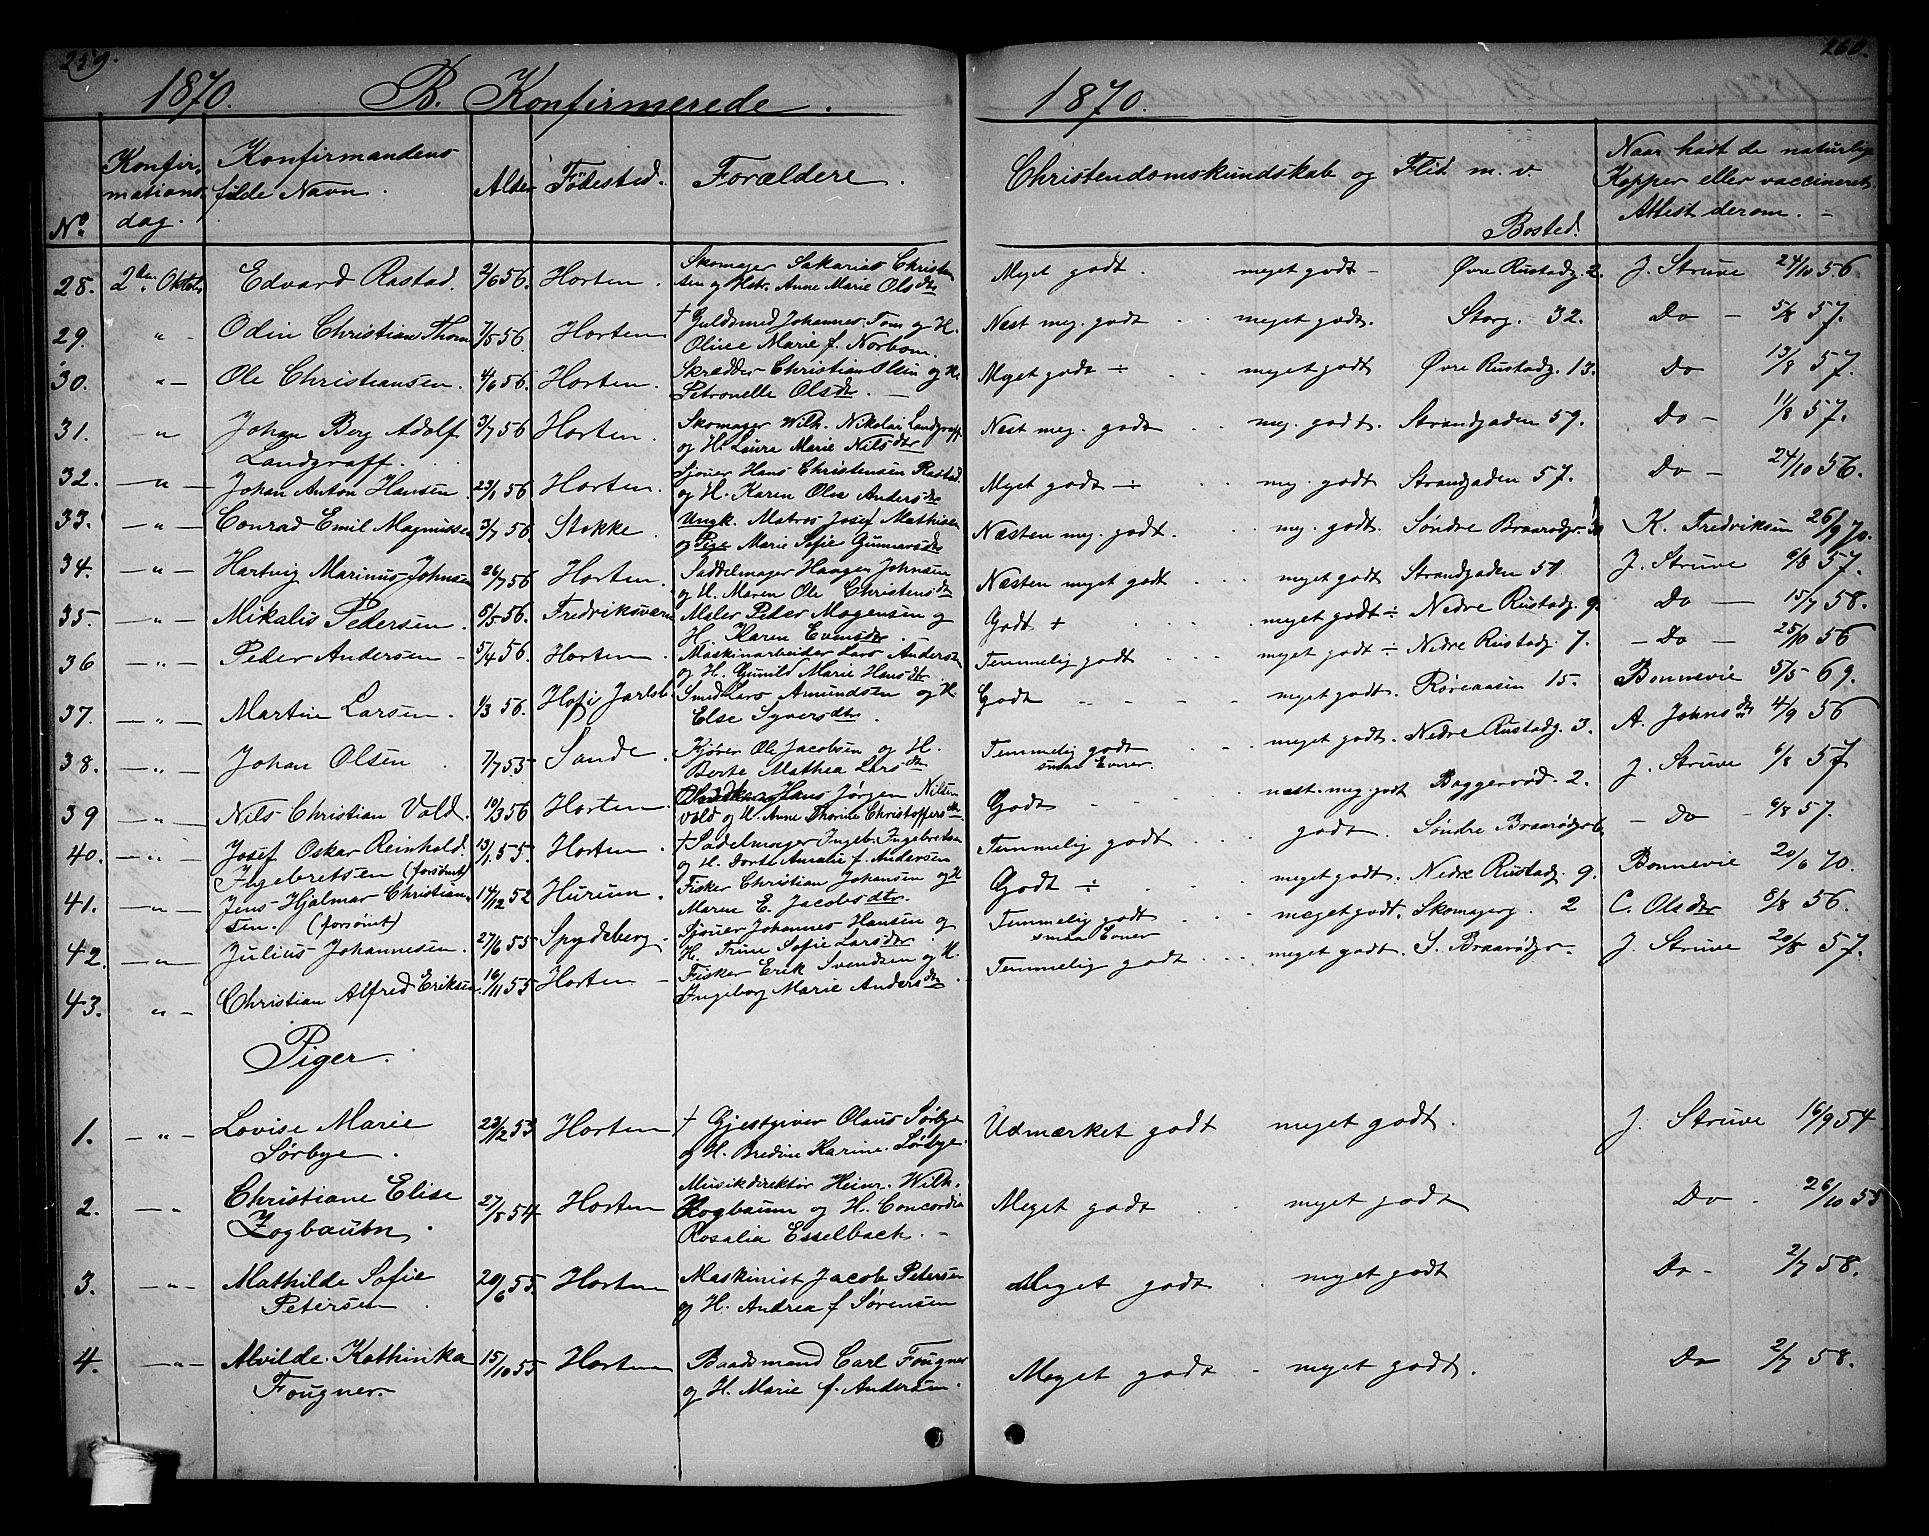 259.
1870. B. Konfirmerede.
No Konfirmationsdag. Konfirmandens fulde Navn. Alder Födested. Forældere.
28. 2den Oktob. Edvard Rastad. 2/6 56. Horten. Skomager Sakarias Christensen og Hstr. Anne Marie Olsdtr
29. " Odin Christian Thom 7/5 56. Horten † Guldsmed Johannes Tom og H. Oliee Marie f. Norbom.
30. " Ole Christiansen. 4/6 56. Horten. Skrædder Christian Olsen og H. Petronelle Olsdtr.
31. " Johan Berg Adolf Landgraff. 3/7 56 Horten. Skomager Wilh. Nikolai Landgraff og H. Laura Marie Nilsdtr
32. " Johan Anton Hansen. 23/1 56 Horten. Sjouer Hans Christensen Rastad. og H. Karen Olea Andersdtr
33. " Conrad Emil Magnussen 3/7 56 Stokke. Ungk. Matros Josef Mathisen og Pige Marie Sofie Gunnarsdtr
34. " Hartvig Marinus Johnsen 26/7 56 Horten. Saddelmager Haagen Johnsen og H. Maren Ole Christensdtr
35. " Mikalis Pedersen. 5/5 56. Fredriksværn Maler Peder Mogensen og H. Karen Evensdtr.
36 " Peder Andersen 5/4 56. Horten. Maskinarbeider Lars Andersen og H. Gunild Marie Hansdtr
37. " Martin Larsen. 1/3 56. Hof i Jarlsb. Smed Lars Amundsen og H. Else Syversdtr.
38. " Johan Olsen 7/7 55 Sande. Kjører Ole Jacobsen og H. Berte Mathea Larsdtr
39 " Nils Christian Vold. 10/3 56 Horten. Hans Jørgen Nilsen Vold og H. Anne Thorine Christoffersdtr
40. " Josef Oskar Reinhold Ingebretsen (forsömt) 13/1 55. Horten. † Sadelmager Ingebr. Ingebretsen og H. Dorte Amalie f. Andersen
41. " Jens Hjalmar Christiansen. (forsömt) 14/12 52 Hurum. Fisker Christian Johansen og H Maren E. Jacobsdtr.
42. " Julius Johannesen. 27/6 55 Spydeberg. Sjouer Johannes Hansen og H. Trine Sofie Larsdtr.
43. " Christian Alfred Eriksen. 16/11 55 Horten Fisker Erik Svendsen og H. Ingeborg Marie Andersdtr.
Piger.
1. " Lovise Marie Sörbye. 23/2 53 Horten † Gjestgiver Olaus Sørbye og H. Bredine Karine Sørbye.
2. " Christiane Elise Zogbaum. 27/5 54 Horten Musikdirektör Heinr. Wilh. Zogbaum og H. Concordia Rosalia Esselbach.
3. " Mathilde Sofie Petersen. 20/6 55. Horten Maskinist Jacob Petersen og H. Andrea f Sørensen
4. " Alvilde Kathinka Fougner. 15/10 55 Horten Baadsmand Carl Fougner og H. Marie f. Andersen.
260.
1870.
Christendomskundskab og Flid m. v. Bosted. Naar havt de naturlige Kopper eller vaccineret. Attest derom.
Meget godt. meget godt Øvre Rustadg. 2. J. Struve 24/10 56
Næst meg. godt meget godt. Storg. 32. Do 5/8 57.
Meget godt ÷ meget godt Øvre Rustadg. 13. Do 13/8 57.
Næst meg. godt meg. godt. Strandgaden 59. Do 11/8 57.
Meget godt ÷ meg. godt Strandgaden 57. Do 24/10 56.
Næsten meg. godt. meg. godt. Søndre Braarødg. K. Fredriksen 26/9 70.
Næsten meget godt meget godt Strandgaden 51 J. Struve 6/8 57.
Godt + meget godt ÷ Nedre Rustadg. 9. Do 15/7 58.
Temmelig godt meget godt ÷ Nedre Rustadg. 7. Do 25/10 56
Godt meget godt. Røreaasen 15. Bonnevie 5/5 69.
Temmelig godt smaa Evner. meget godt. Nedre Rustadg. 3. A. Johnsdtr 4/9 56
Godt næst. meg. godt Baggerød. 2. J. Struve 6/8 57
Temmelig godt godt. Søndre Braarødg. 6 Do 6/8 57.
Godt ÷ meget godt. Nedre Rustadg. 9. Bonnevie 20/6 70.
Temmelig godt smaa Evner meget godt. Skomagerg. 2 C. Olsdtr 8/8 56.
Temmelig godt meget godt. S. Braarødg. J. Struve 20/8 57.
Udmærket godt meget godt. J. Struve 16/9 54
Meget godt meget godt Do 26/10 55
Meget godt meget godt Do 2/7 58.
Meget godt meget godt. Do 2/7 58.